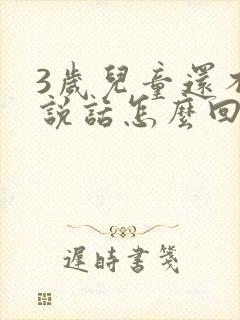 3歲兒童還不
說話怎麼回
遲時書箋